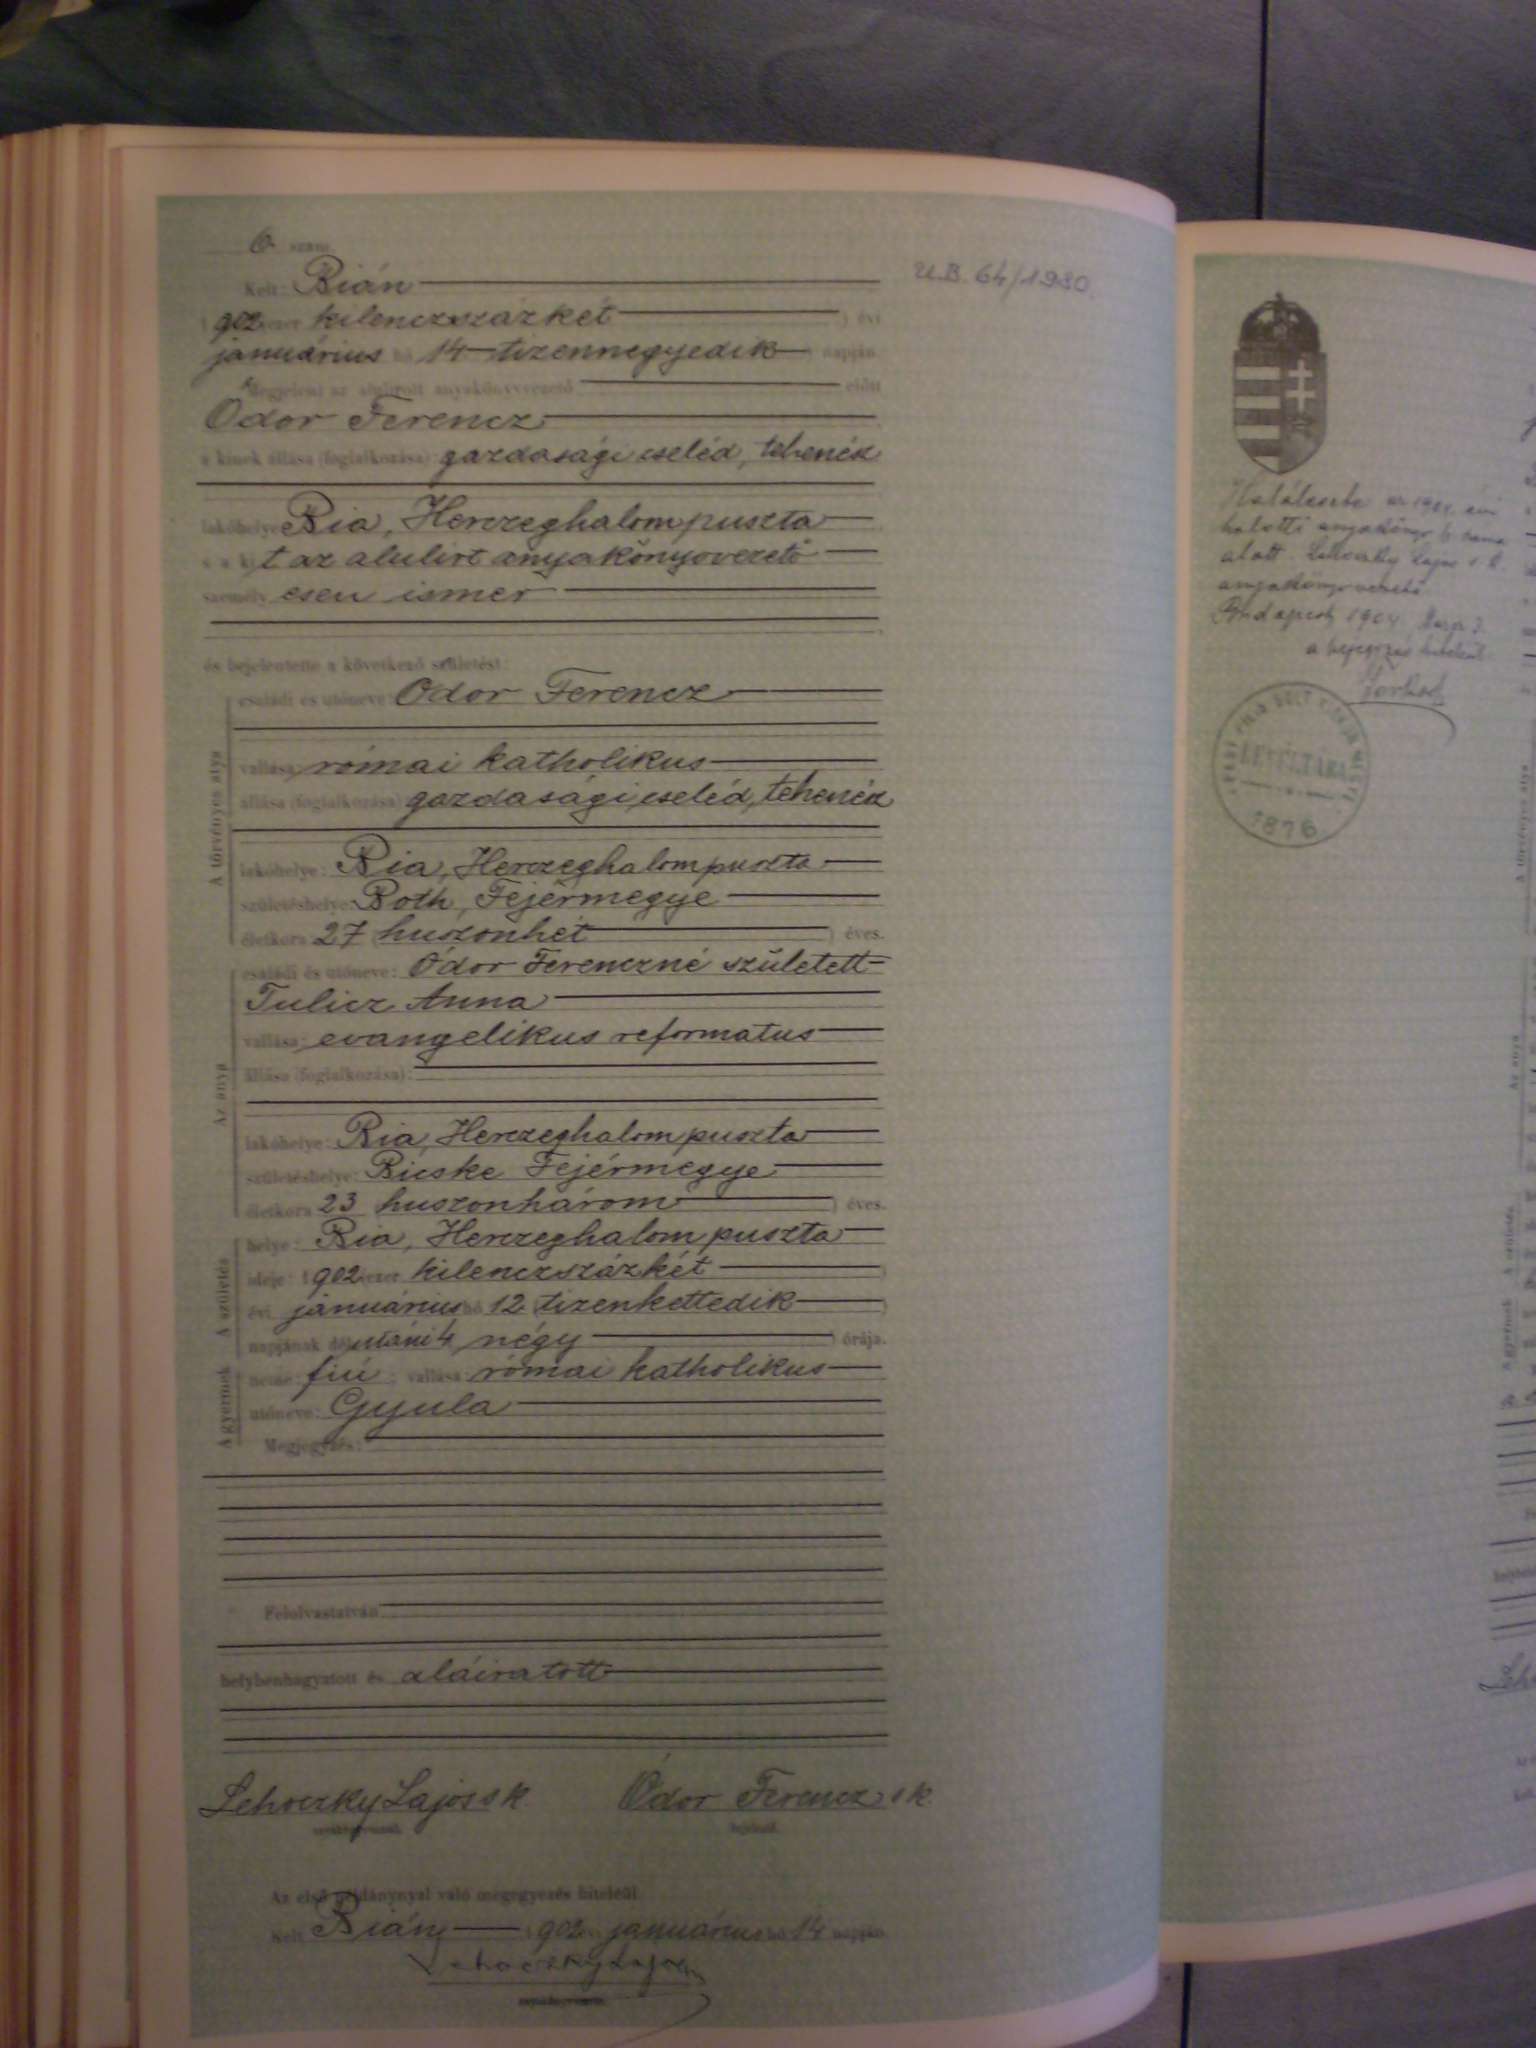 6. szám.
Kelt: Bián
1902 ezer kilenczszázkét ) évi
január ius hó 14 tizennegyedik napján.
Megjelent az alulirott anyakönyvvezető előtt
Odor Ferencz
a kinek állása (foglalkozása): gazdasági cseléd, tehenész
lakóhelye: Bia, Herczeghalompuszta
s a kit az alulirt anyakönyvvezető
személyesen ismer
és bejelentette a következő születést:
A törvényes atya
családi és utóneve: Odor Ferencz
vallása: római katholikus
állása (foglalkozása): gazdasági cseléd, tehenész
lakóhelye: Bia, Herczeghalompuszta
születéshelye: Both, Fejérmegye
életkora: 27 (huszonhét ) éves.
Az anya
családi és utóneve: Ódor Ferenczné született
Tulicz Anna
vallása: evangelikus reformatus
állása (foglalkozása):
lakóhelye: Bia, Herczeghalompuszta
születéshelye: Bicske Fejérmegye
életkora 23 huszonhárom ) éves.
A születés
helye: Bia, Herczeghalom puszta
ideje: 1902 ezer kilenczszázkét )
évi január ius hó 12 (tizenkettedik )
napjának délutáni 4 négy ) órája.
A gyermek
neme: fiú ; vallása: római katholikus
utóneve: Gyula
Megjegyzés:
Felolvastatván
helybenhagyatott és aláiratott
Lehoczky Lajos sk. Ódor Ferencz sk
anyakönyvvezető. bejelentő.
Az első példánynyal való megegyezés hiteléül.
Kelt Bián 1902 évi január ius hó 14 napján
Lehoczky Lajos
anyakönyvvezető.
U.B. 64/1980.
Halálesete az 1904. évi
halotti anyakönyv 6. száma
alatt. Lehoczky Lajos s. k.
anyakönyvvezető.
Budapest, 1904.
a bejegyzés hiteléül
LEVÉLTÁRA
1876